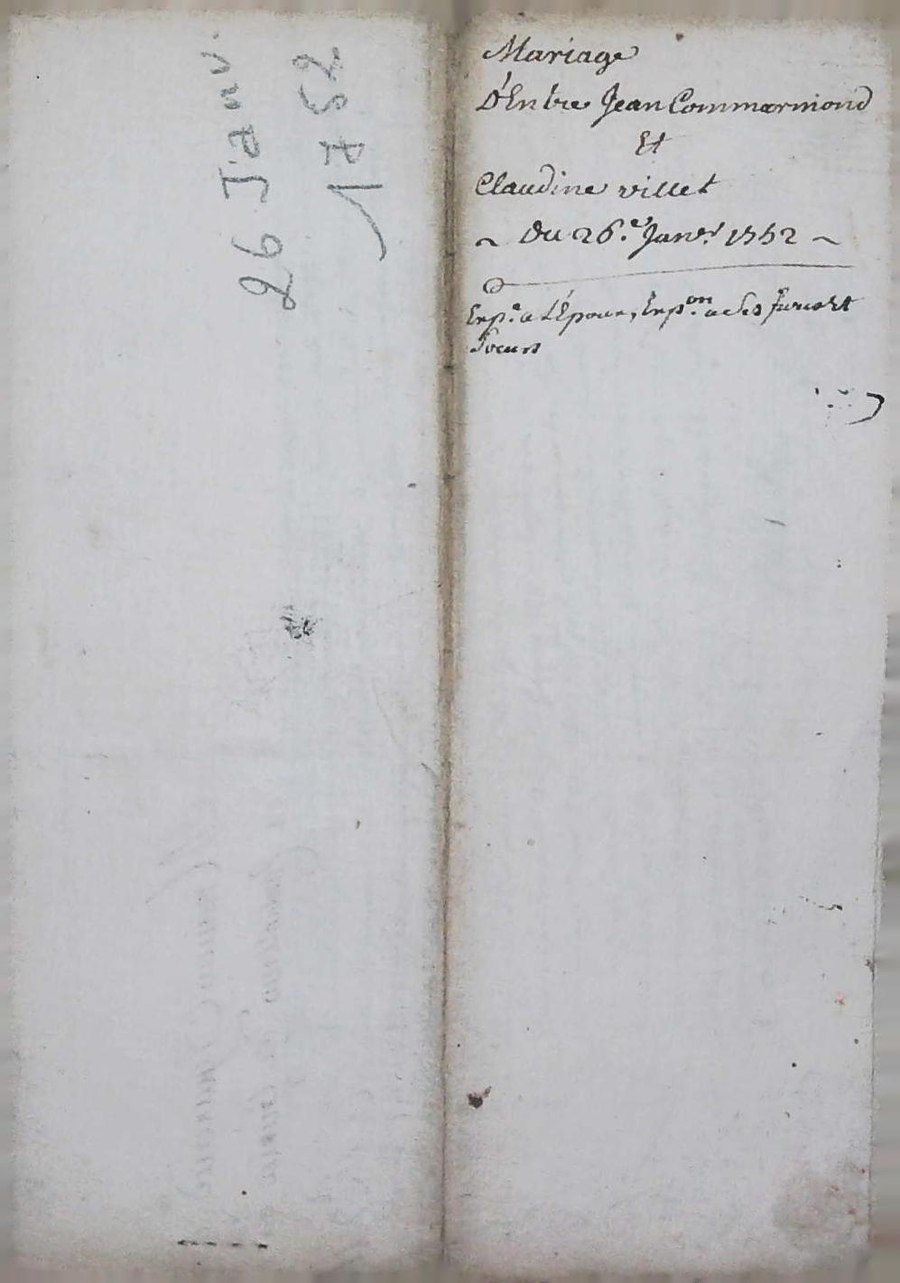 26 Janv.
1752
Mariage
D'Entre Jean Commarmond
Et
Claudine villet
~ Du 26.e Janer. 1752 ~
Exp.e a L'Epoux, Exp.on a ses freres Et
Soeurs